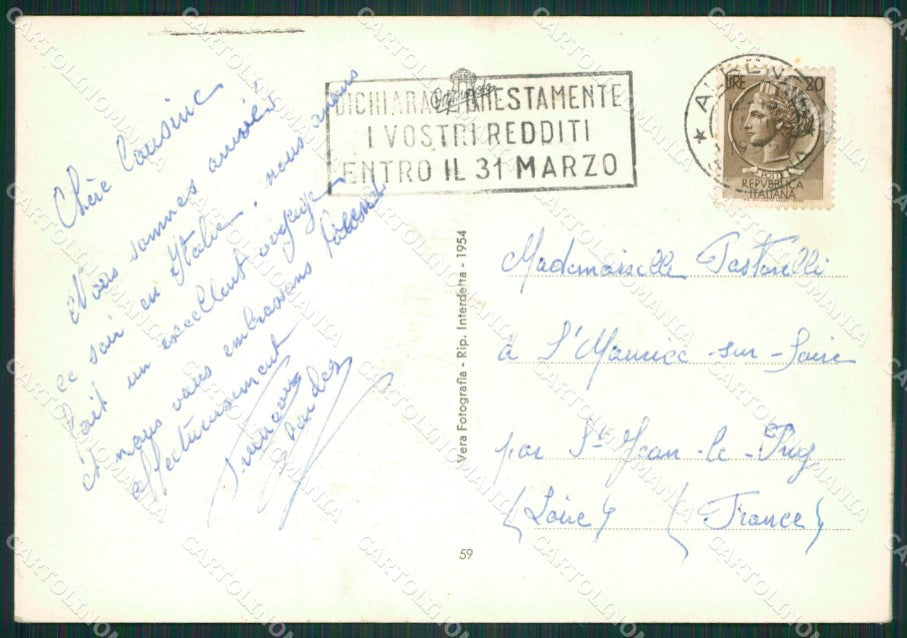 Chère Cousine
Nous sommes arrivés
ce soir en Italie. nous avons
fait un excellent voyage
et nous vous embrassons bien
affectueusement
DICHIARATE ONESTAMENTE
I VOSTRI REDDITI
ENTRO IL 31 MARZO
LIRE 20
REPVBBLICA
ITALIANA
Vera Fotografia - Rip. Interdetta - 1954
Mademoiselle Pastorelli
à St Maurice-sur-Loire
par St Jean-le-Puy
(Loire) (France)
59
CARTOLINOMANIA